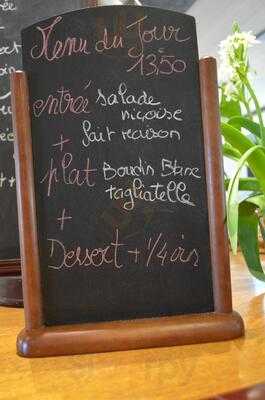 Menu du Jour
13,50
entreé salade
niçoise
fait maison
+
plat Boudin Blanc
tagliatelle
+
Dessert + 1/4 vin